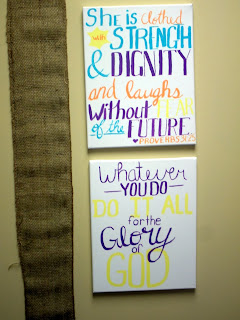 She is clothed
with STRENGTH
& DIGNITY
and laughs
Without FEAR
of the FUTURE.
♥PROVERBS 31:25
Whatever
—YOU DO—
DO IT ALL
for the
Glory
of
GOD